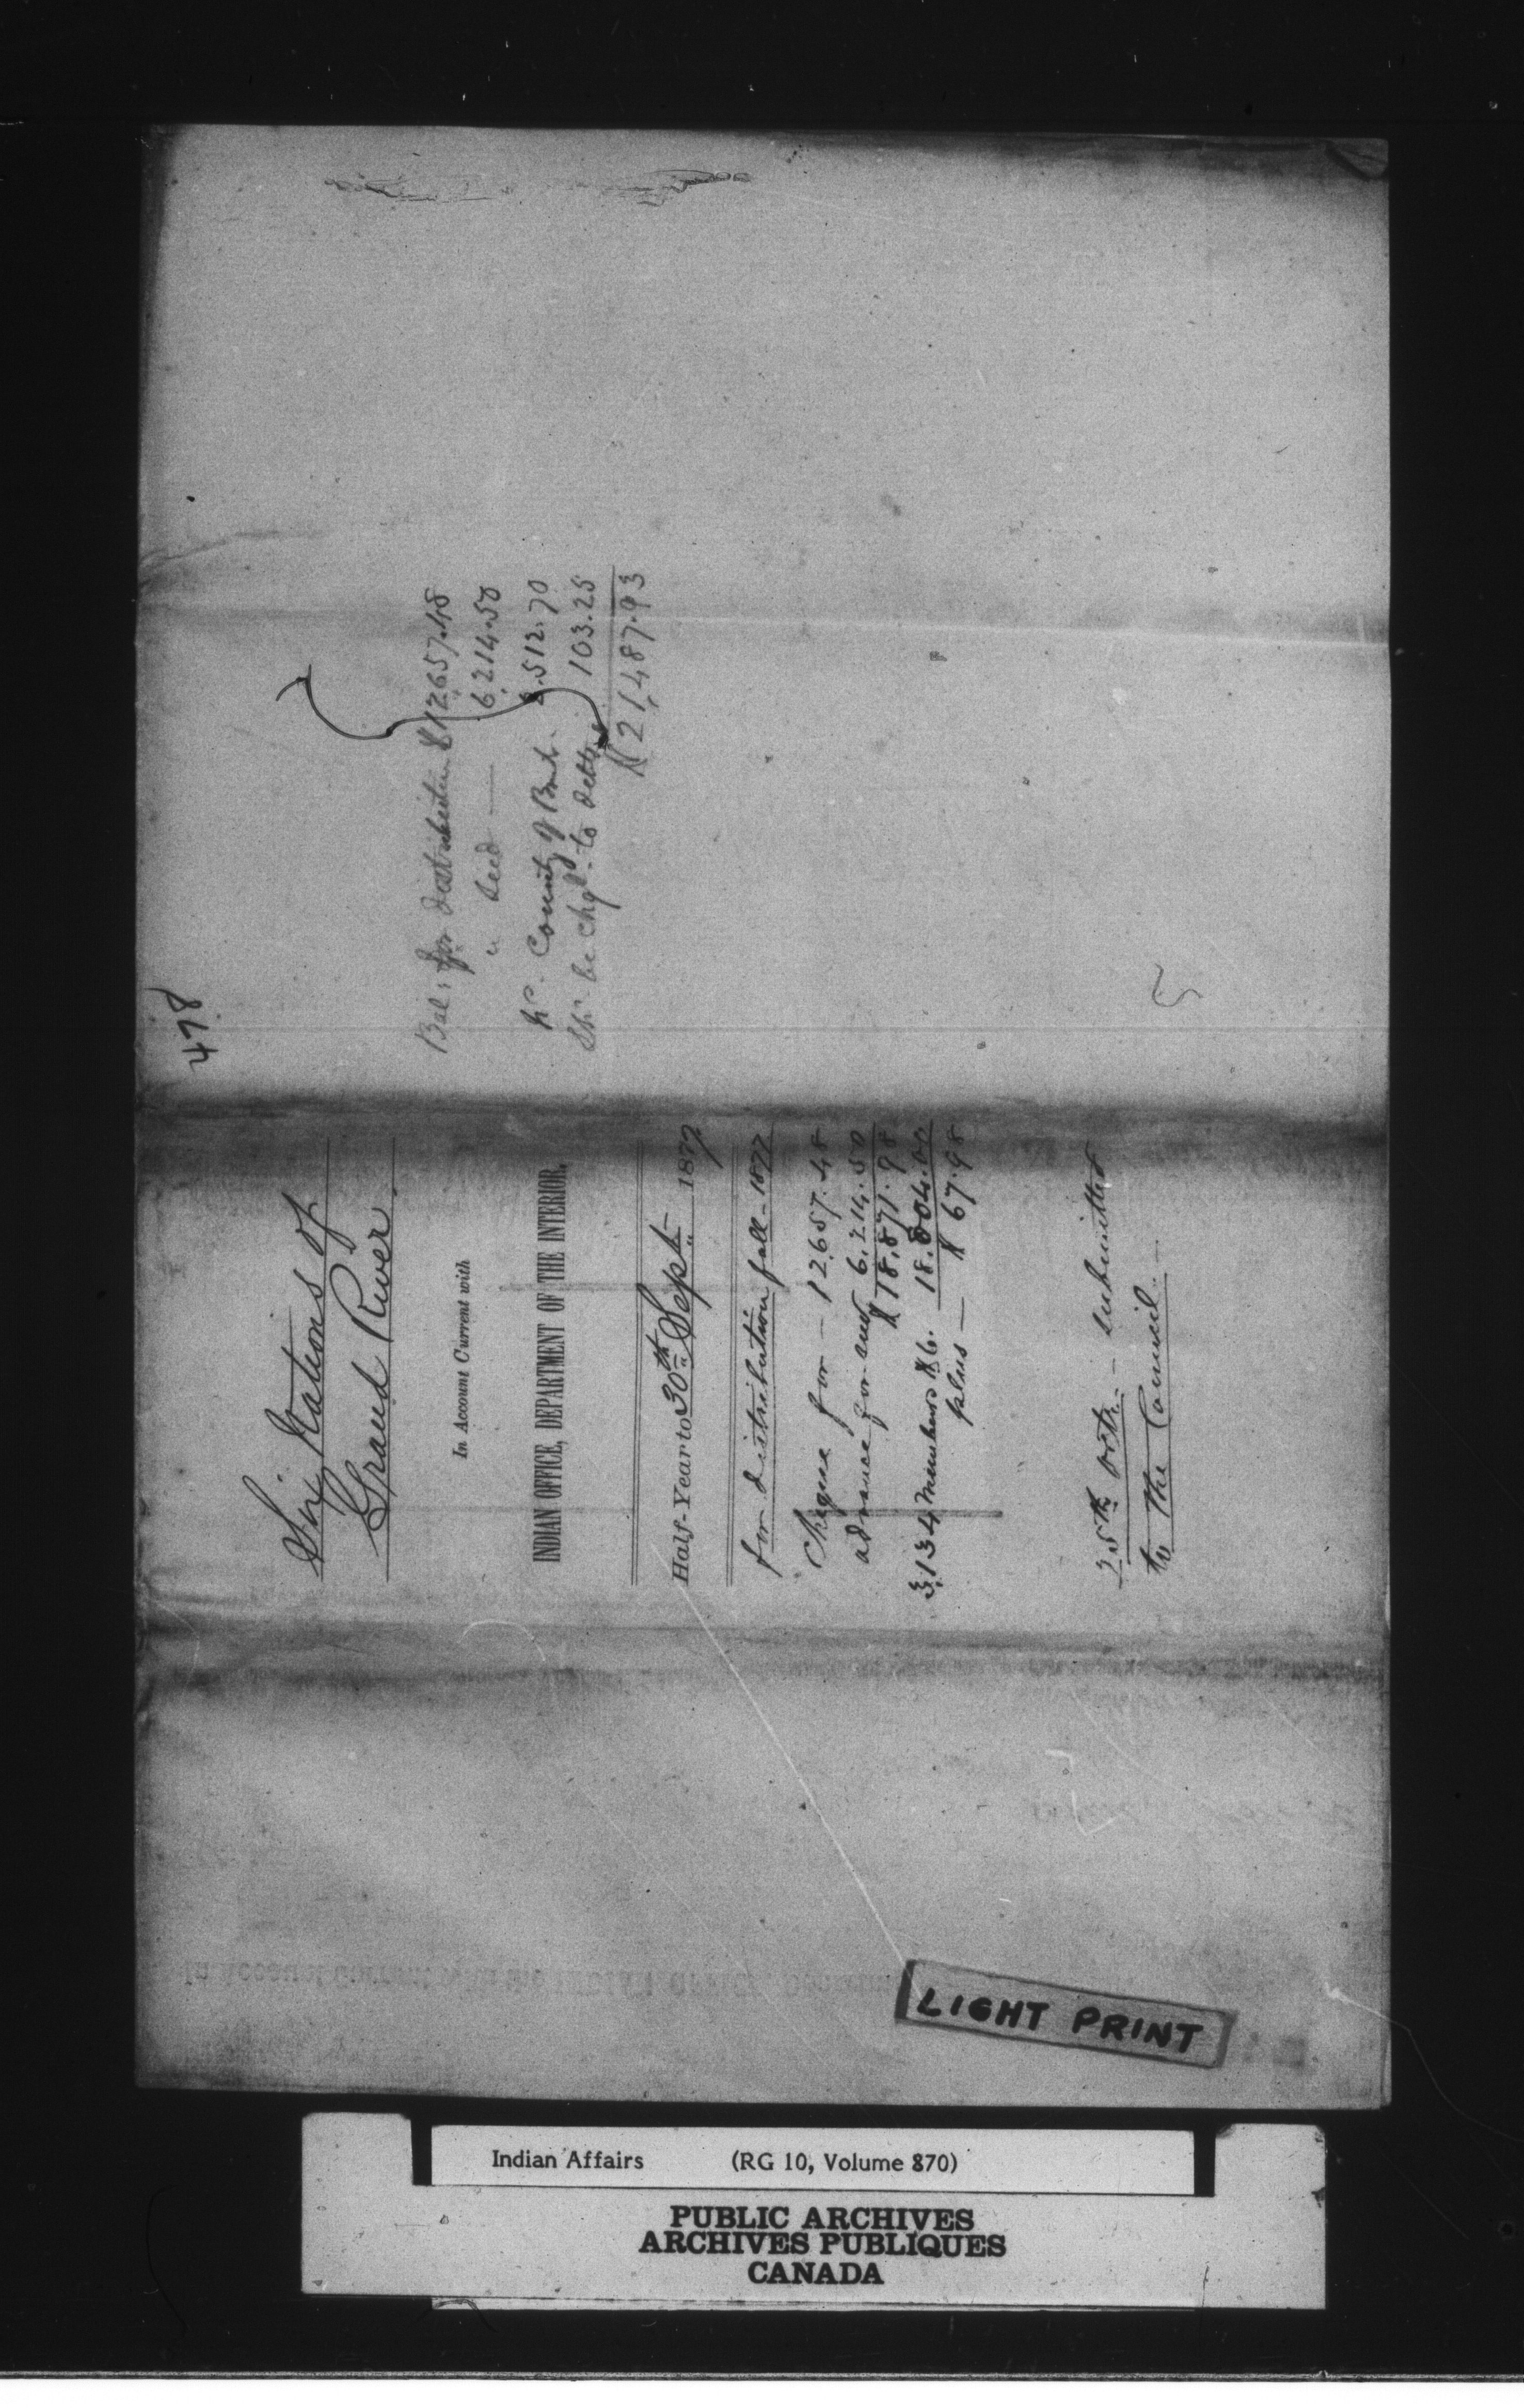 478
Six Nations of
Grand River.
In Account Current with
INDIAN OFFICE, DEPARTMENT OF THE INTERIOR.
Half-Year to 30th Sept 1877
for distribution fall - 1877
Cheque for - 12657.48
advance for seed 6,214.50
$18,871.98
3,134 Members $6. 18.804.00
plus - $67.98
25th Octr. - submitted
to the Council. -
Bal: for distribution $12657.48
" seed - 6,214.50
County of Brant. 2.512.70
be chgd. to debts 103.25
$21,487.93
LIGHT PRINT
Indian Affairs (RG 10, Volume 870)
PUBLIC ARCHIVES
ARCHIVES PUBLIQUES
CANADA